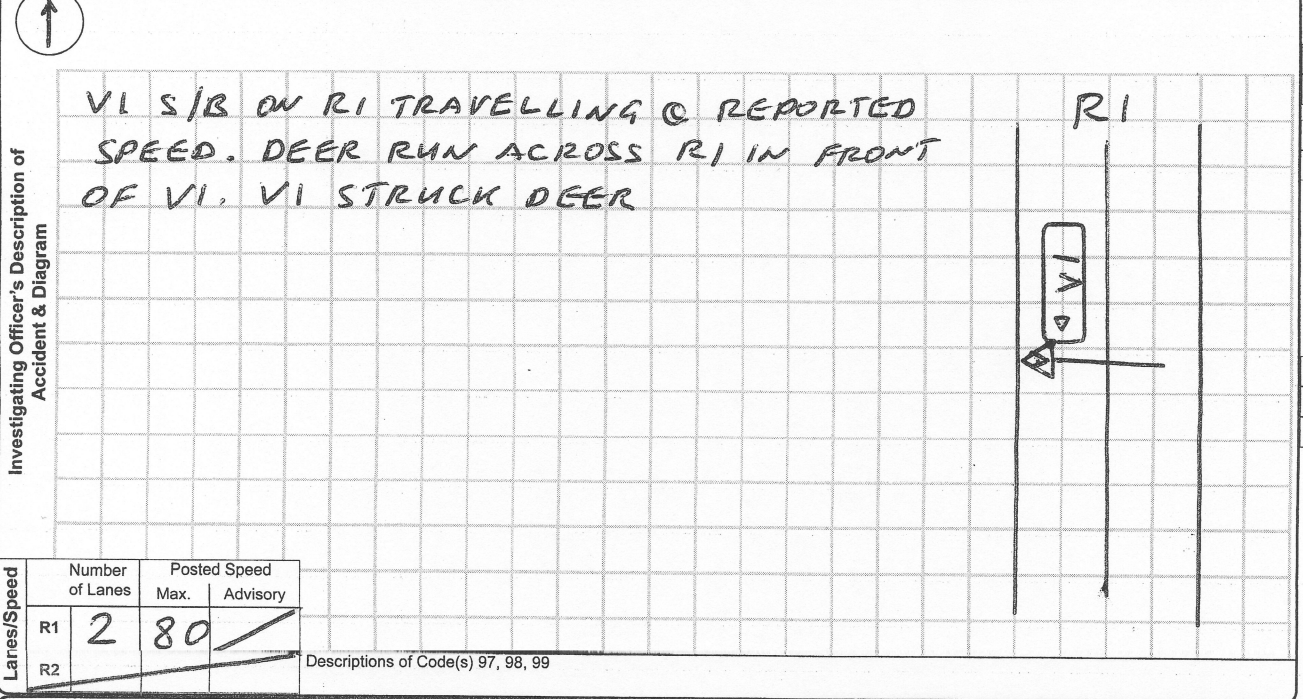 Investigating Officer's Description of
Accident & Diagram
V1 S/B ON R1 TRAVELLING @ REPORTED
SPEED. DEER RUN ACROSS R1 IN FRONT
OF V1. V1 STRUCK DEER
R1
V1
Lanes/Speed
Number of Lanes
Posted Speed
Max. Advisory
R1 2 80
R2
Descriptions of Code(s) 97, 98, 99